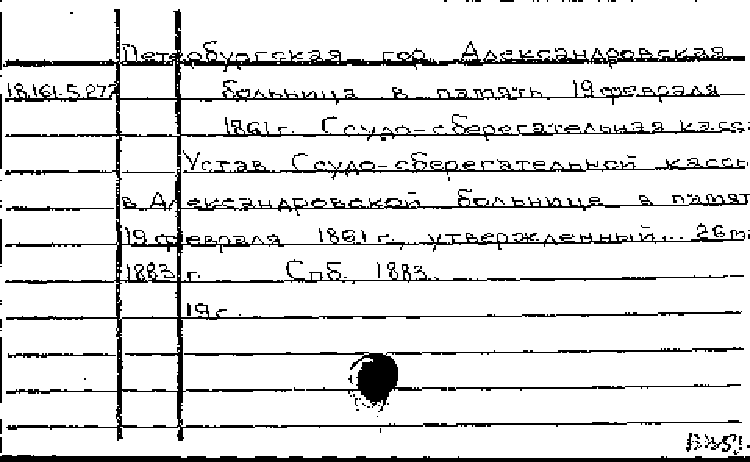 Петербургская гор. Александровская
18.161.5.277 больница в память 19 февраля
1861 г. Ссудо-сберегательная касса
Устав Ссудо-сберегательной кассы
в Александровской больнице в память
19 февраля 1861 г., утвержденный... 26
1883 г. Спб, 1883.
19 с.